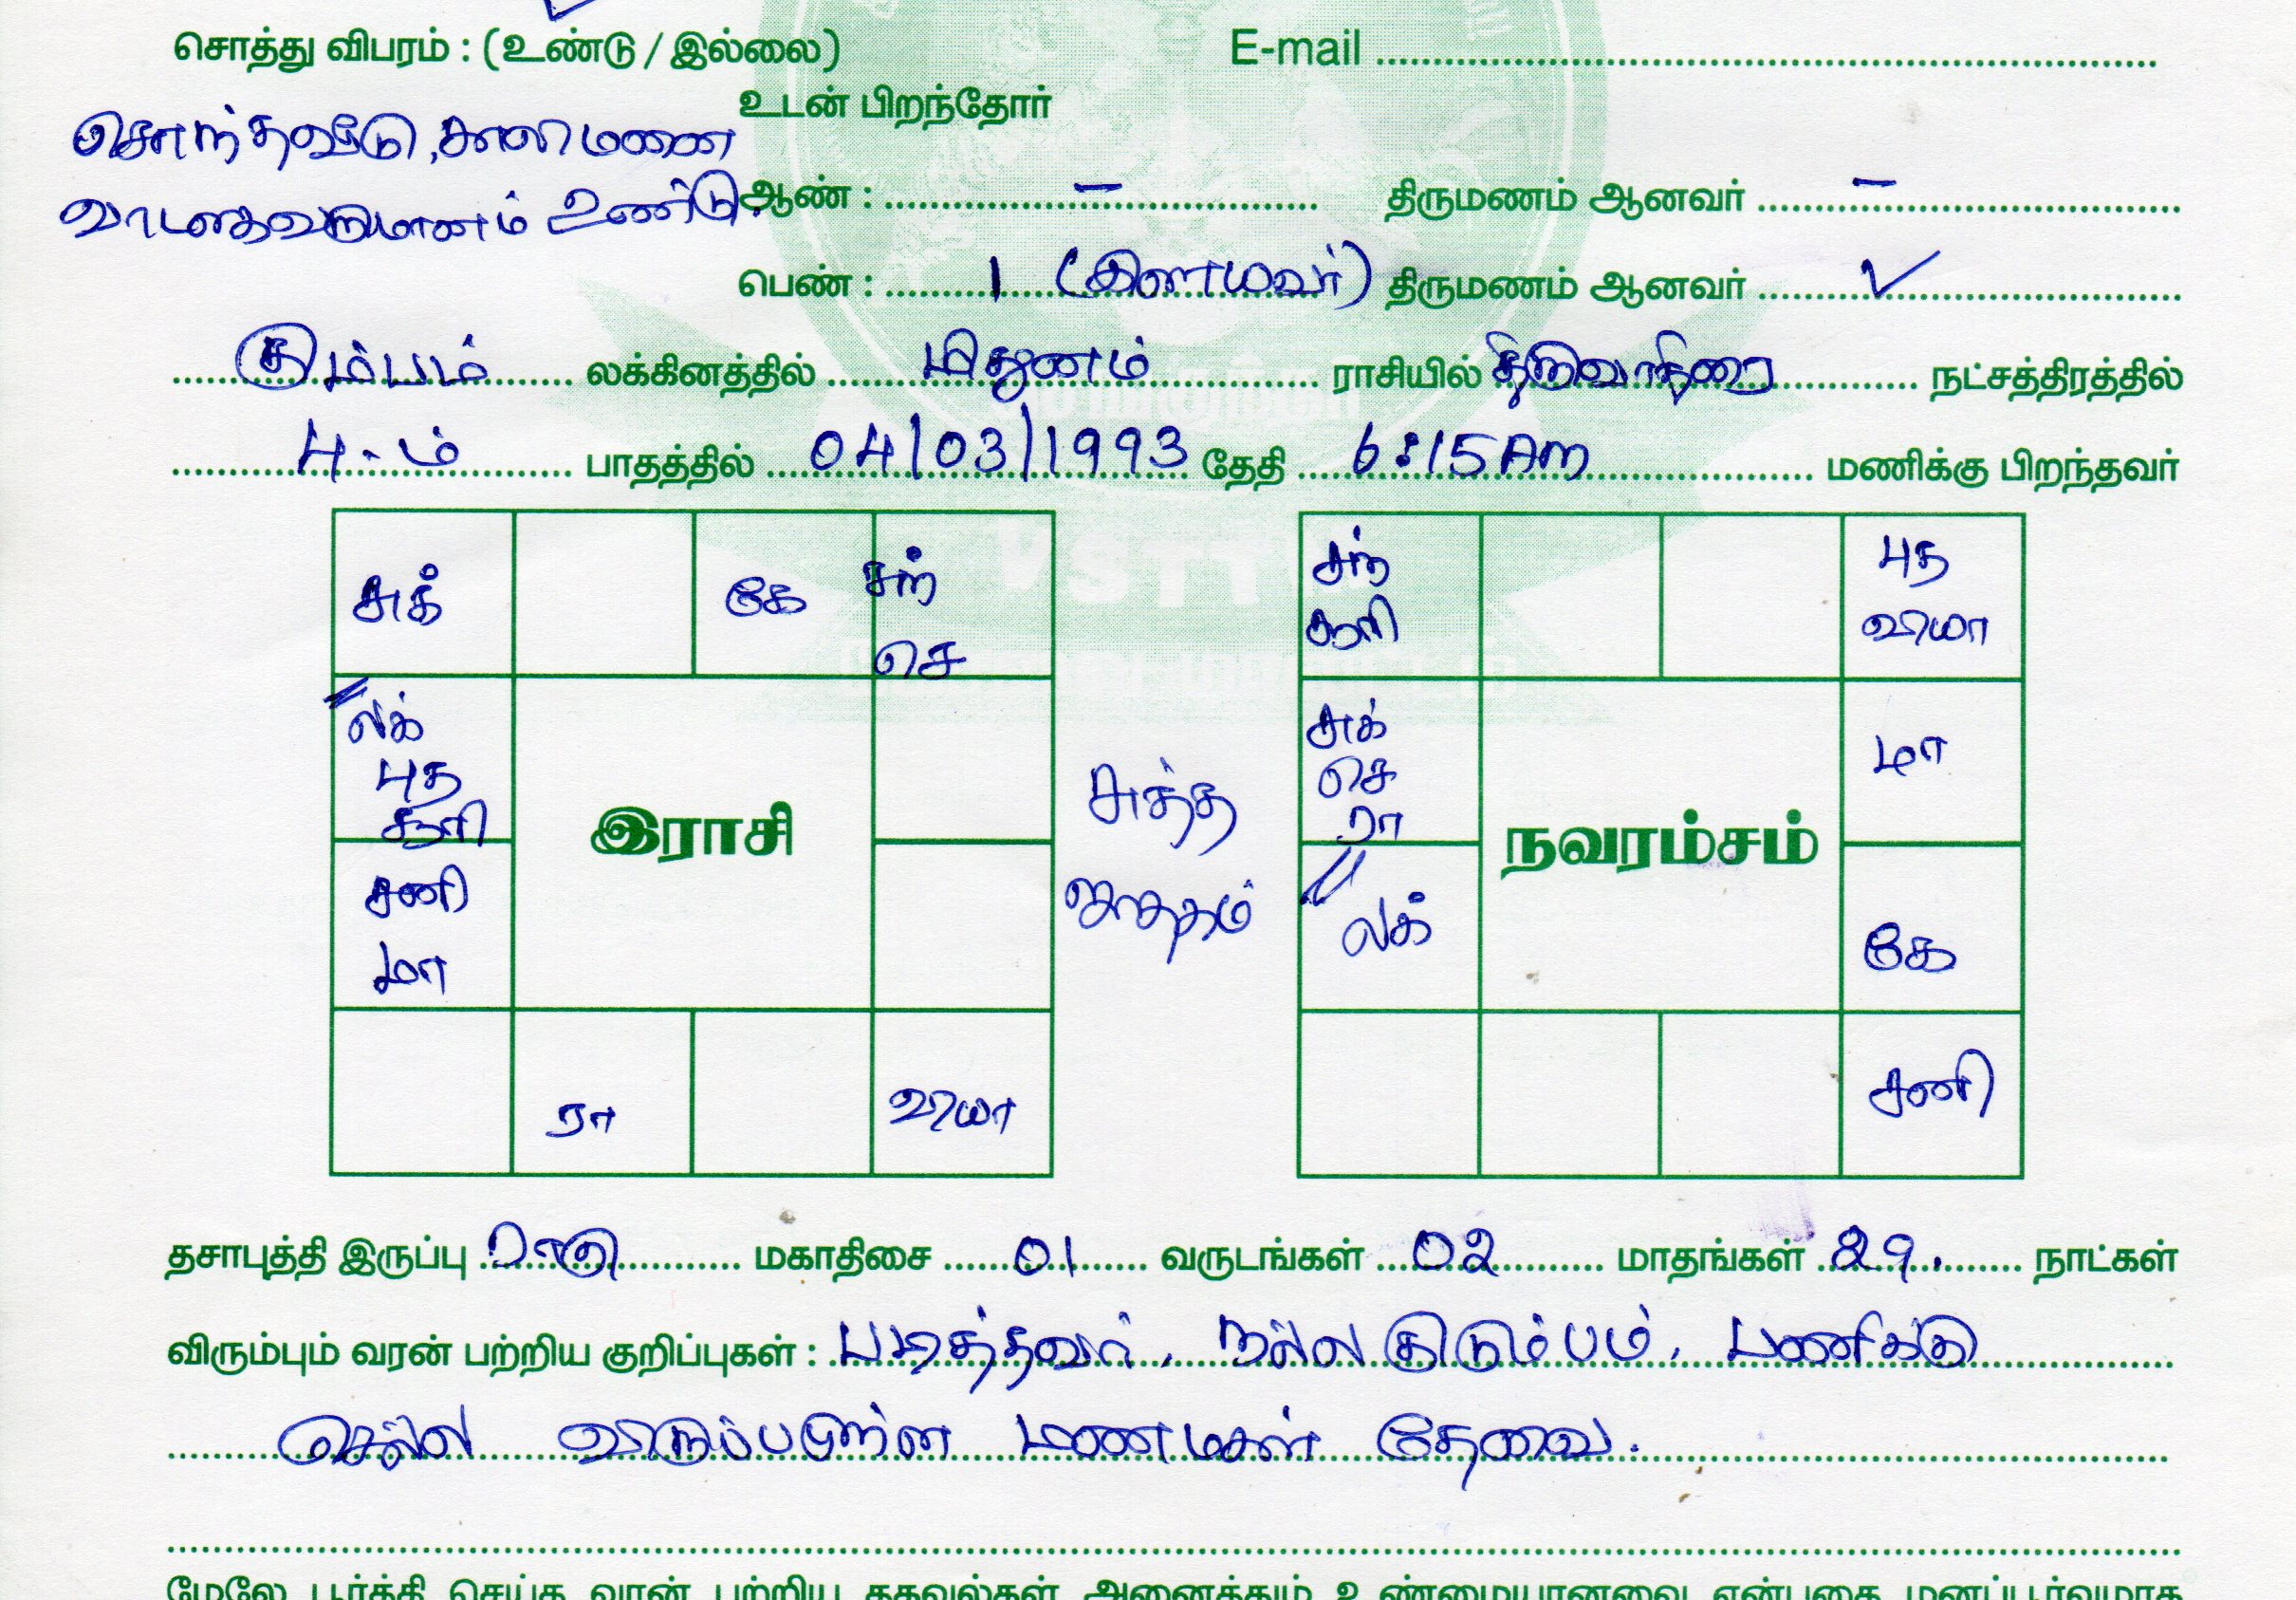 சொத்து விபரம் : (உண்டு / இல்லை) E-mail
உடன் பிறந்தோர்
சொந்தவீடு, காலிமணை
வாடகைவருமானம் உண்டு.
ஆண் : – திருமணம் ஆனவர் –
பெண் : 1 (இளையவர்) திருமணம் ஆனவர் ✓
கும்பம் லக்கினத்தில் மிதுனம் ராசியில் திருவாதிரை நட்சத்திரத்தில்
4-ம் பாதத்தில் 04/03/1993 தேதி 6:15 Am மணிக்கு பிறந்தவர்
சுக் கே சந் செ
லக் புத சூரி
இராசி
சனி மா
ரா வியா
சுத்த ஜாதகம்
சந் சூரி புத வியா
சுக் செ ரா மா
நவரம்சம்
லக் கே
சனி
தசாபுத்தி இருப்பு ராகு மகாதிசை 01 வருடங்கள் 02 மாதங்கள் 29. நாட்கள்
விரும்பும் வரன் பற்றிய குறிப்புகள் : படித்தவர், நல்ல குடும்பம், பணிக்கு
செல்ல விருப்பமுள்ள மணமகள் தேவை.
மேலே பூர்த்தி செய்த வரன் பற்றிய தகவல்கள் அனைத்தும் உண்மையானவை என்பதை மனப்பூர்வமாக